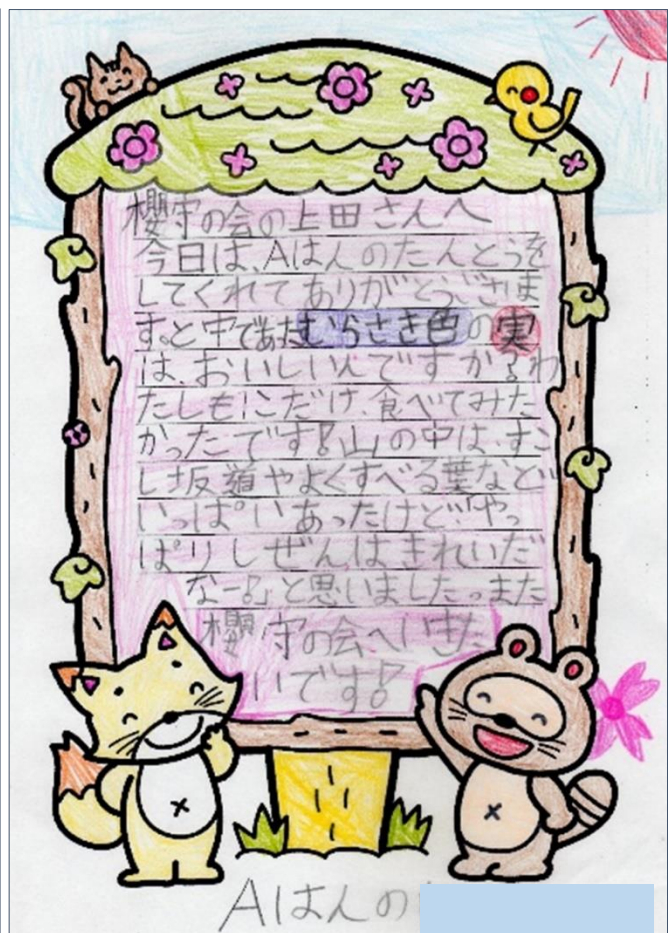 櫻守の会の上田さんへ
今日は、Aはんのたんとうを
してくれてありがとうございま
す。と中であったむらさき色の実
は、おいしいんですか？わ
たしも1こだけ、食べてみた
かったです！山の中は、すこ
し坂道やよくすべる葉など
いっぱいあったけど、「やっ
ぱりしぜんはきれいだ
なー。」と思いました。また
櫻守の会へいきた
いです！
Aはんの